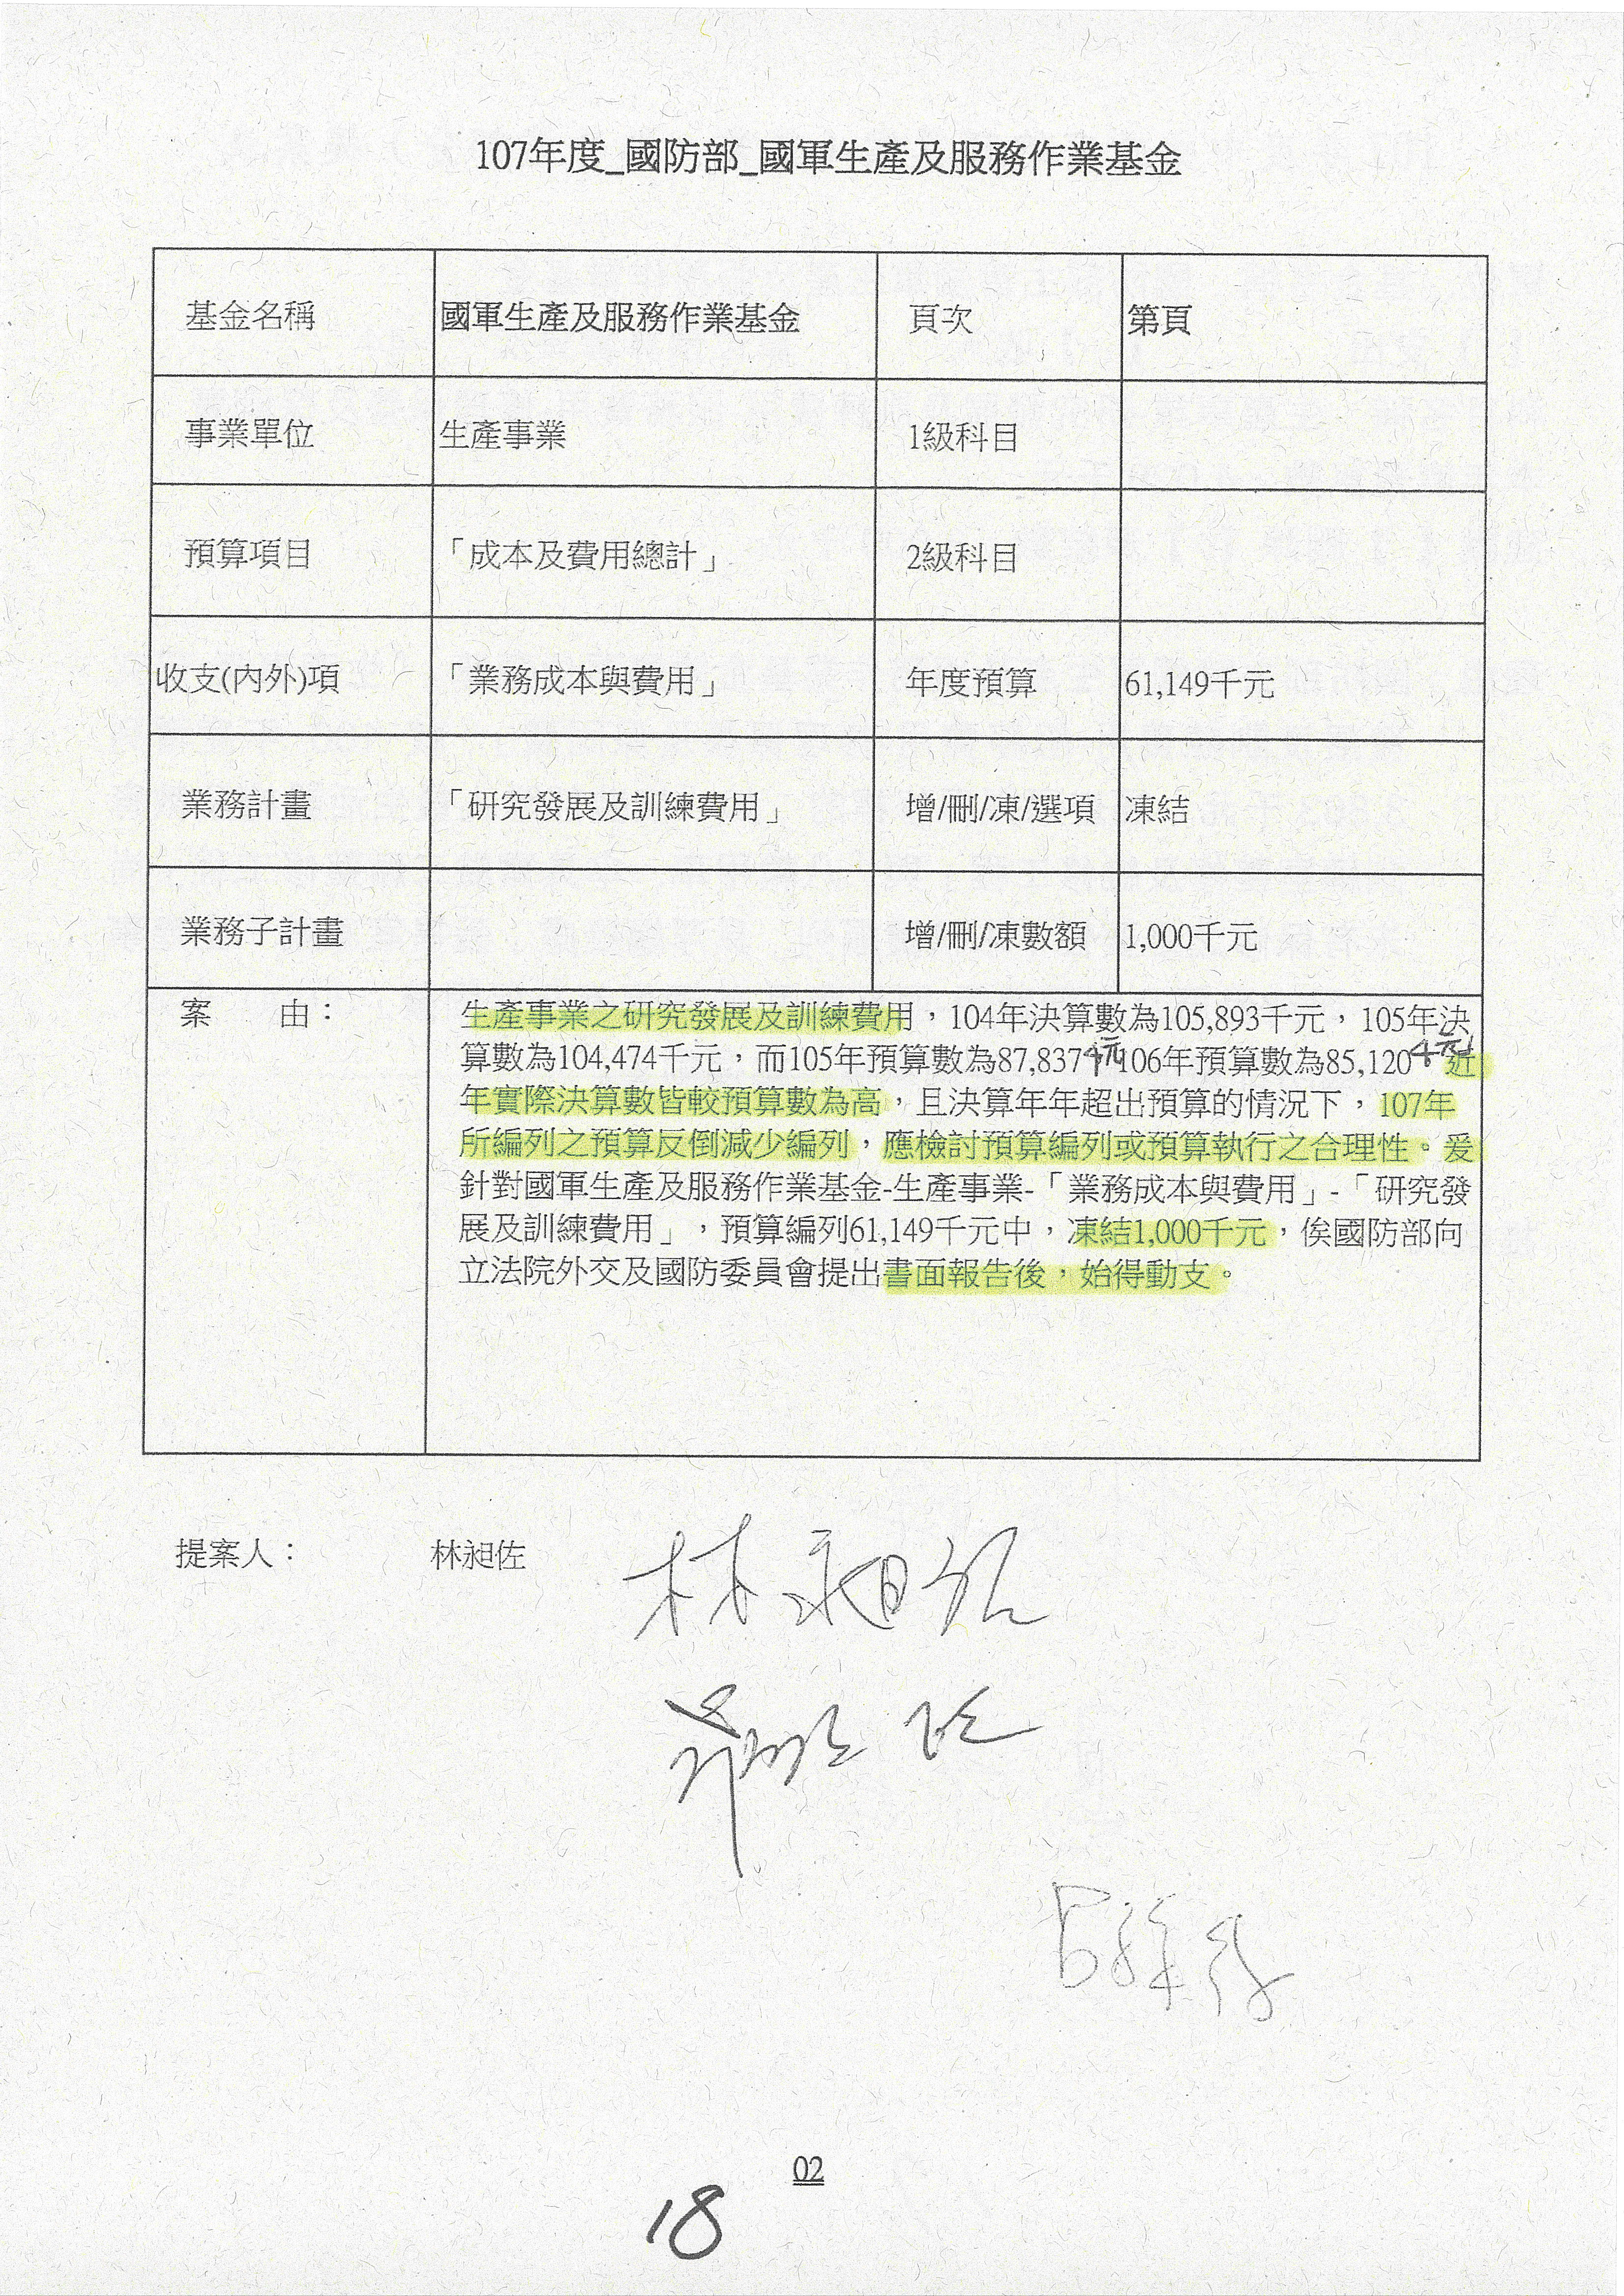 107年度_國防部_國軍生產及服務作業基金
基金名稱 國軍生產及服務作業基金 頁次 第頁
事業單位 生產事業 1級科目
預算項目 「成本及費用總計」 2級科目
收支(內外)項 「業務成本與費用」 年度預算 61,149千元
業務計畫 「研究發展及訓練費用」 增/刪/凍/選項 凍結
業務子計畫 增/刪/凍數額 1,000千元
案 由： 生產事業之研究發展及訓練費用，104年決算數為105,893千元，105年決
算數為104,474千元，而105年預算數為87,837千元106年預算數為85,120千元，近
年實際決算數皆較預算數為高，且決算年年超出預算的情況下，107年
所編列之預算反倒減少編列，應檢討預算編列或預算執行之合理性。爰
針對國軍生產及服務作業基金-生產事業-「業務成本與費用」-「研究發
展及訓練費用」，預算編列61,149千元中，凍結1,000千元，俟國防部向
立法院外交及國防委員會提出書面報告後，始得動支。
提案人： 林昶佐 林昶佐
02
18